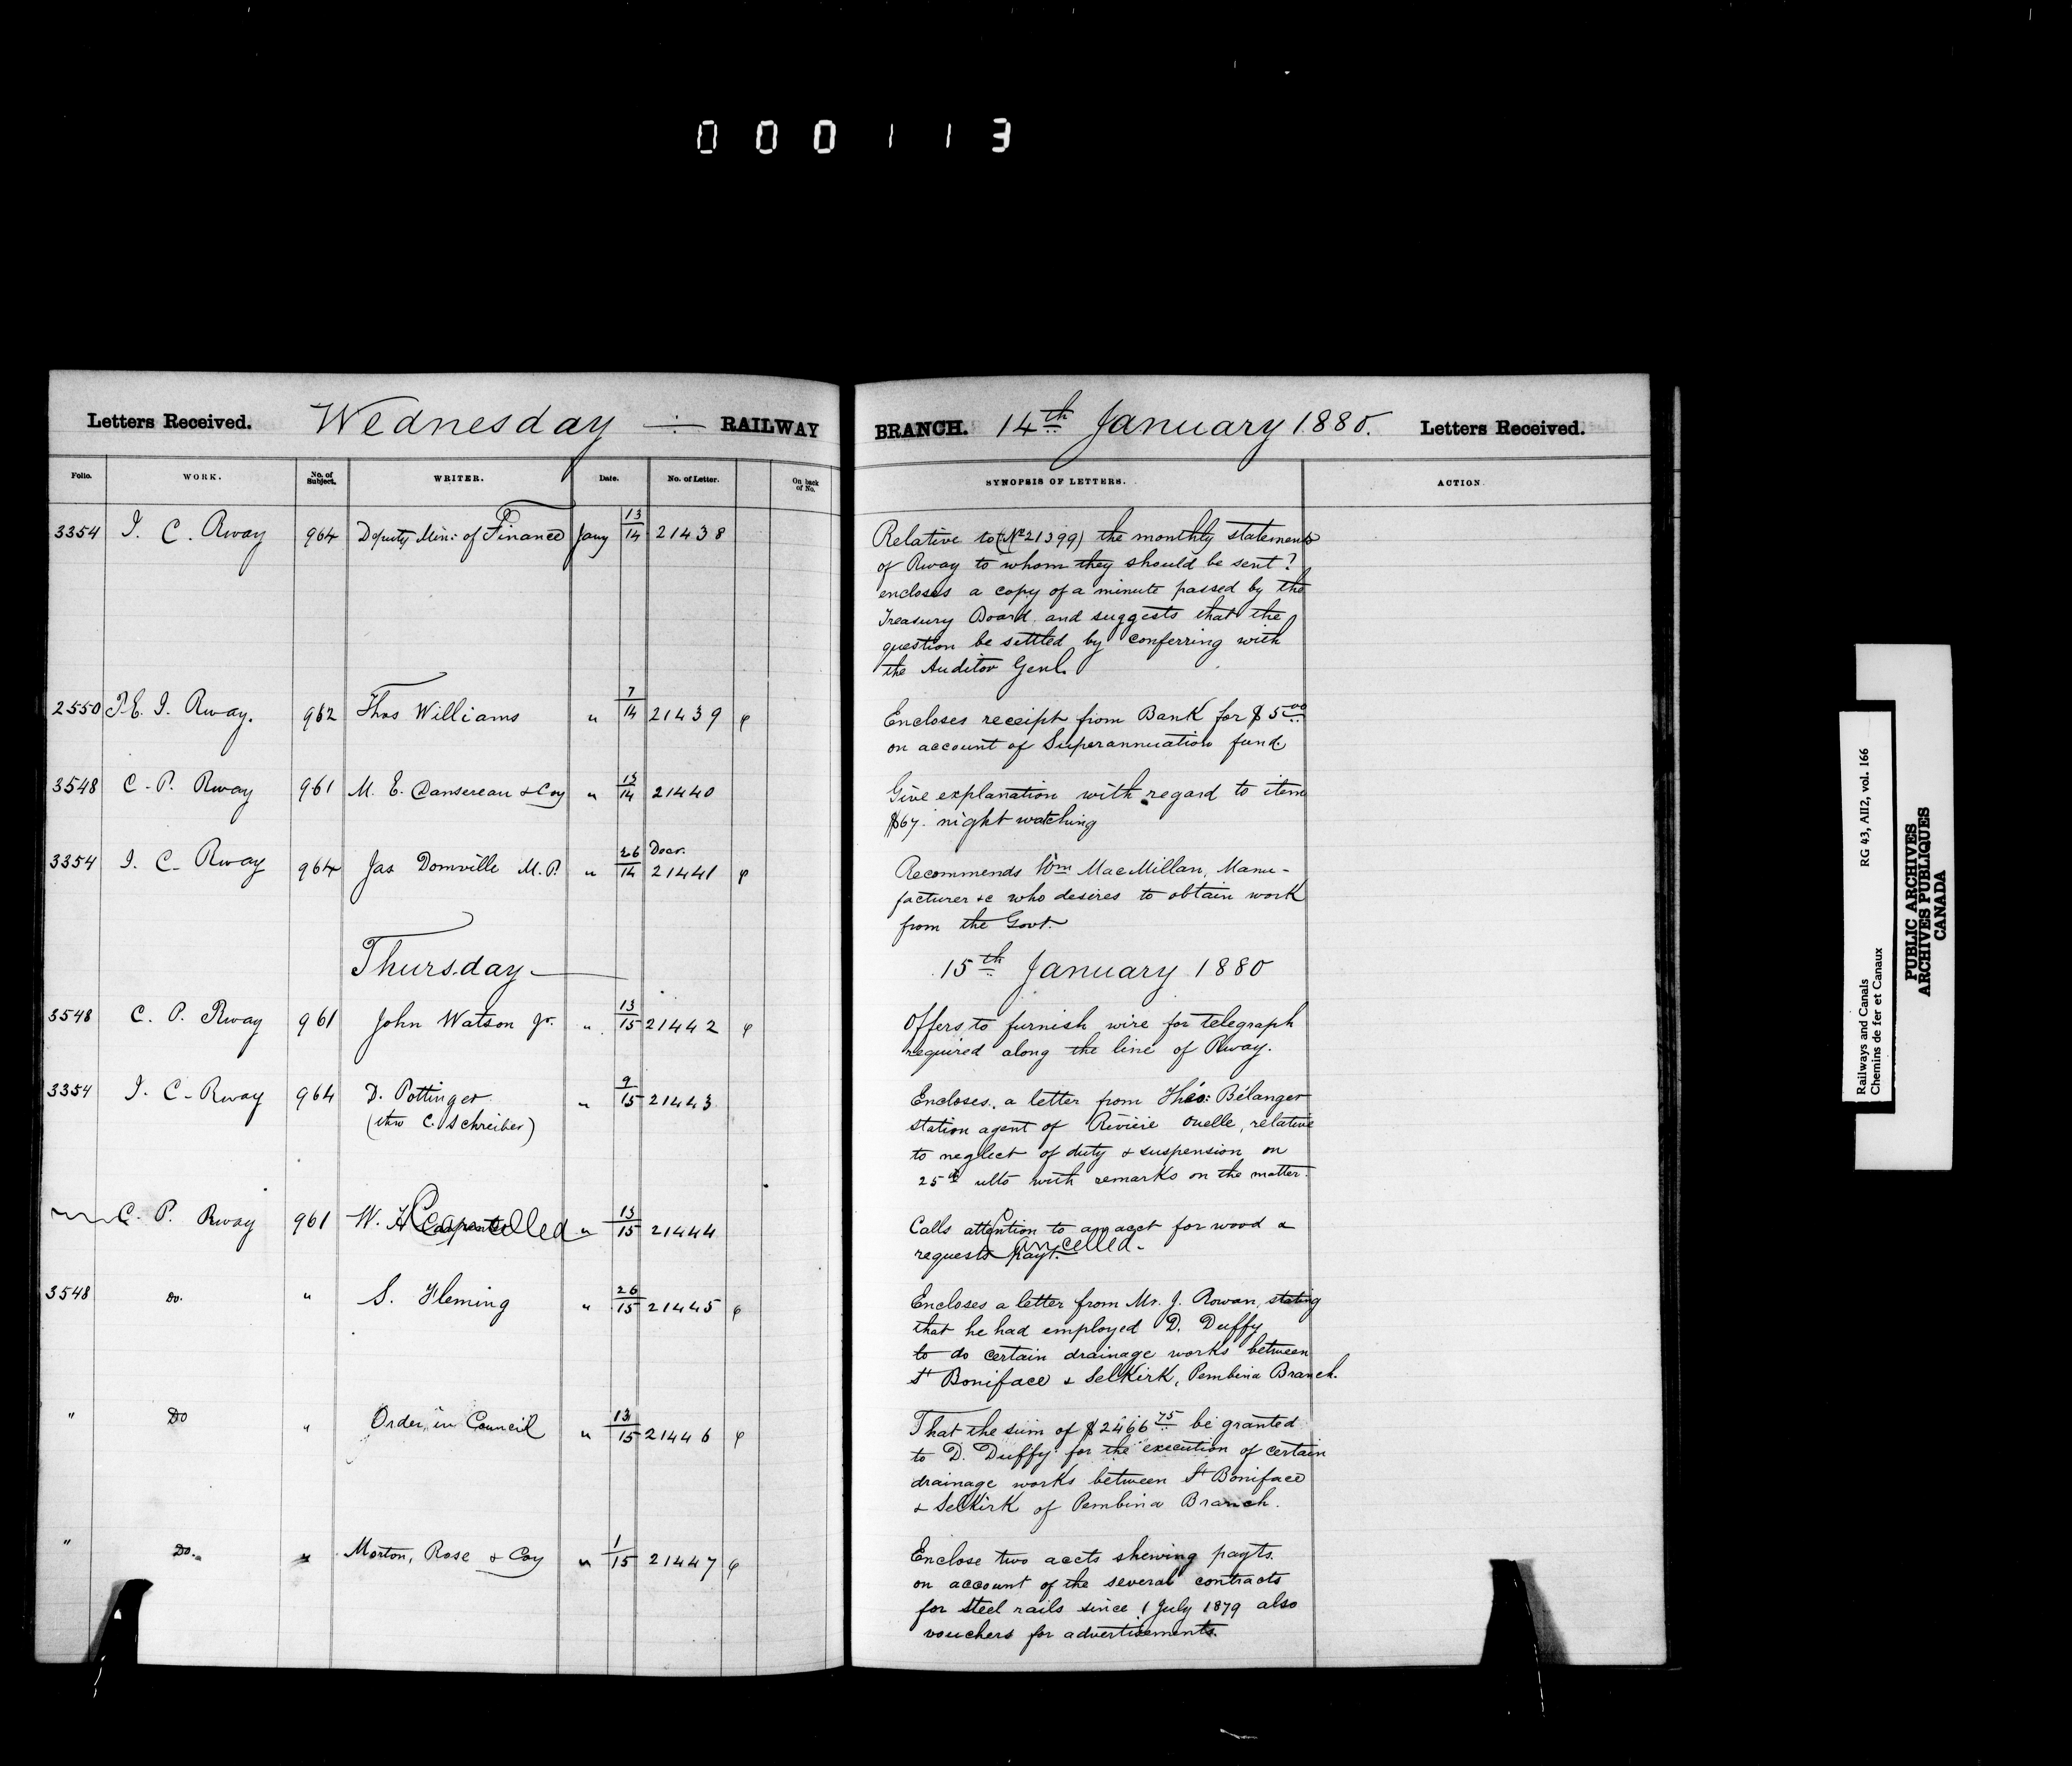 000113
Letters Received. Wednesday — RAILWAY BRANCH. 14th January 1880. Letters Received.
Folio. WORK. No. of Subject. WRITER. Date. No. of Letter. On back of No. SYNOPSIS OF LETTERS. ACTION
3354 I. C. Rway 964 Deputy Min: of Finance Jany 13/14 21438 Relative to (No 21399) the monthly statements
of Rway to whom they should be sent?
encloses a copy of a minute passed by the
Treasury Board and suggests that the
question be settled by conferring with
the Auditor Genl.
2550 P. E. I. Rway. 962 Thos Williams " 7/14 21439 φ Encloses receipt from Bank for $5.00
on account of Superannuation fund
3548 C. P. Rway 961 M. E. Dansereau & Coy " 13/14 21440 Give explanation with regard to item
$67. night watching
3354 I. C. Rway 964 Jas Domville M.P. " 26 Decr./14 21441 φ Recommends Wm MacMillan, Manu-
facturer &c who desires to obtain work
from the Govt.
Thursday — 15th January 1880
3548 C. P. Rway 961 John Watson Jr. " 13/15 21442 φ Offers to furnish wire for telegraph
required along the line of Rway.
3354 I. C. Rway 964 D. Pottinger " 9/15 21443 Encloses a letter from Théo: Bélanger
(thro C. Schreiber) station agent of Rivière Ouelle, relative
to neglect of duty & suspension on
25th ulto with remarks on the matter.
C. P. Rway 961 W. H. Carpenter Cancelled " 13/15 21444 Calls attention to an acct for wood &
requests payt. Cancelled.
3548 Do. " S. Fleming " 26/15 21445 φ Encloses a letter from Mr. J. Rowan, stating
that he had employed D. Duffy
to do certain drainage works between
St Boniface & Selkirk, Pembina Branch.
" Do " Order in Council " 13/15 21446 φ That the sum of $2466.75 be granted
to D. Duffy for the execution of certain
drainage works between St Boniface
& Selkirk of Pembina Branch.
" Do. " Morton, Rose & Coy " 1/15 21447 φ Enclose two accts shewing payts.
on account of the several contracts
for steel rails since 1 July 1879 also
vouchers for advertisements.
Railways and Canals RG 43, AII2, vol. 166
Chemins de fer et Canaux
PUBLIC ARCHIVES
ARCHIVES PUBLIQUES
CANADA